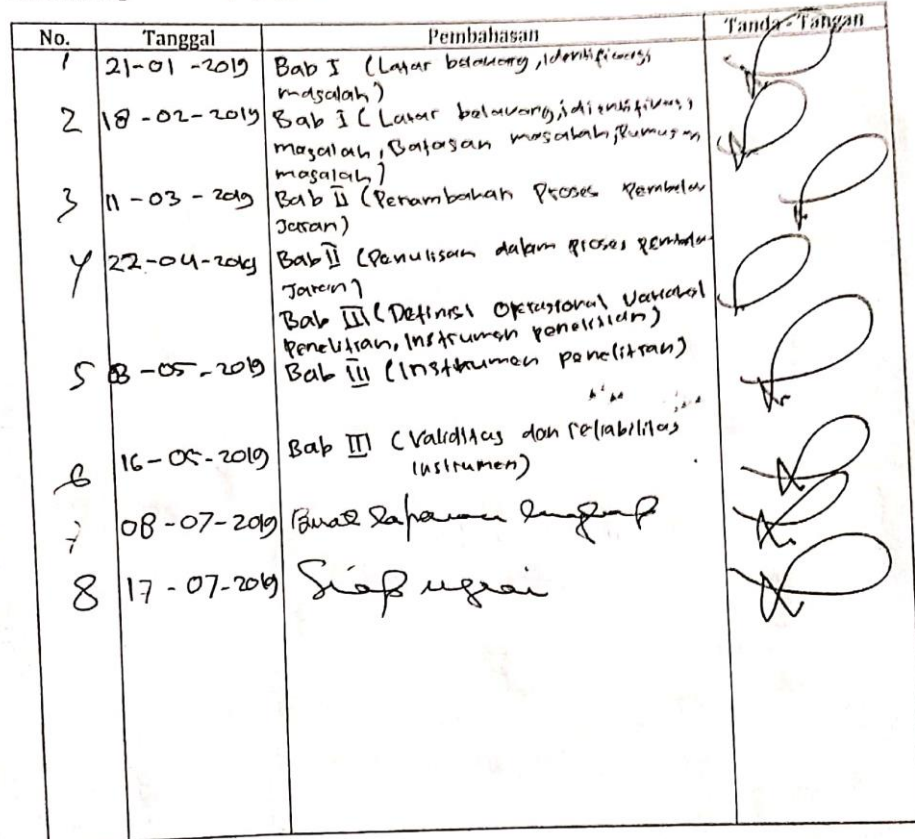 No. Tanggal Pembahasan Tanda - Tangan
1 21-01-2019 Bab I (Latar belakang, identifikasi
masalah)
2 18-02-2019 Bab I (Latar belakang, identifikasi
masalah, Batasan masalah, Rumusan
masalah)
3 11-03-2019 Bab II (Penambahan Proses Pembela
Jaran)
4 22-04-2019 Bab II (Penulisan dalam proses pembela
Jaran)
Bab III (Definisi Operasional Variabel
penelitian, Instrumen penelitian)
5 08-05-2019 Bab III (Instrumen penelitian)
6 16-05-2019 Bab III (Validitas dan reliabilitas
instrumen)
7 08-07-2019 Buat laporan lengkap
8 17-07-2019 Siap